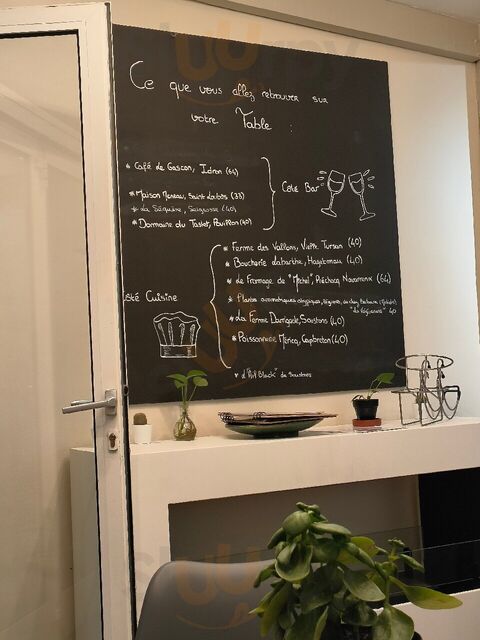 Ce que vous allez retrouver sur
votre Table :
* Café de Gascon, Idron (64)
* Maison Moreau, Saint Lubis (33)
* La Séquère, Saigrosse (40)
* Domaine du Tastet, Pouillon (40)
Côté Bar
* Ferme des Vallons, Vielle Tursan (40)
* Boucherie Labarthe, Hagetmau (40)
* Le Fromage de "Michel" Préchacq Navarrenx (64)
* Plantes aromatiques atypiques,
40
* La Ferme Darrigade, Soustons (40)
* Poissonnerie Méricq, Capbreton (40)
ôté Cuisine
* L'"Art Black" de Soustons